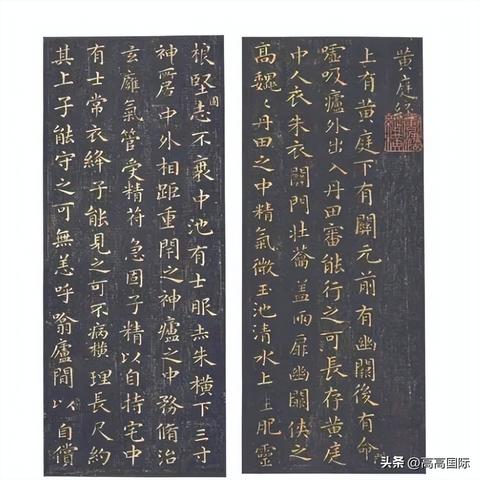 黄庭經
上有黄庭下有關元前有幽闕後有命
噓吸廬外出入丹田審能行之可長存黄庭
中人衣朱衣關門壯蘥蓋兩扉幽闕俠之
高魏〻丹田之中精氣微玉池清水上生肥靈
根堅志不衰中池有士服赤朱橫下三寸
固
神所居中外相距重閇之神廬之中務脩治
玄廱氣管受精符急固子精以自持宅中
有士常衣絳子能見之可不病橫理長尺約
其上子能守之可無恙呼翕廬間以自償
头条 @高高国际